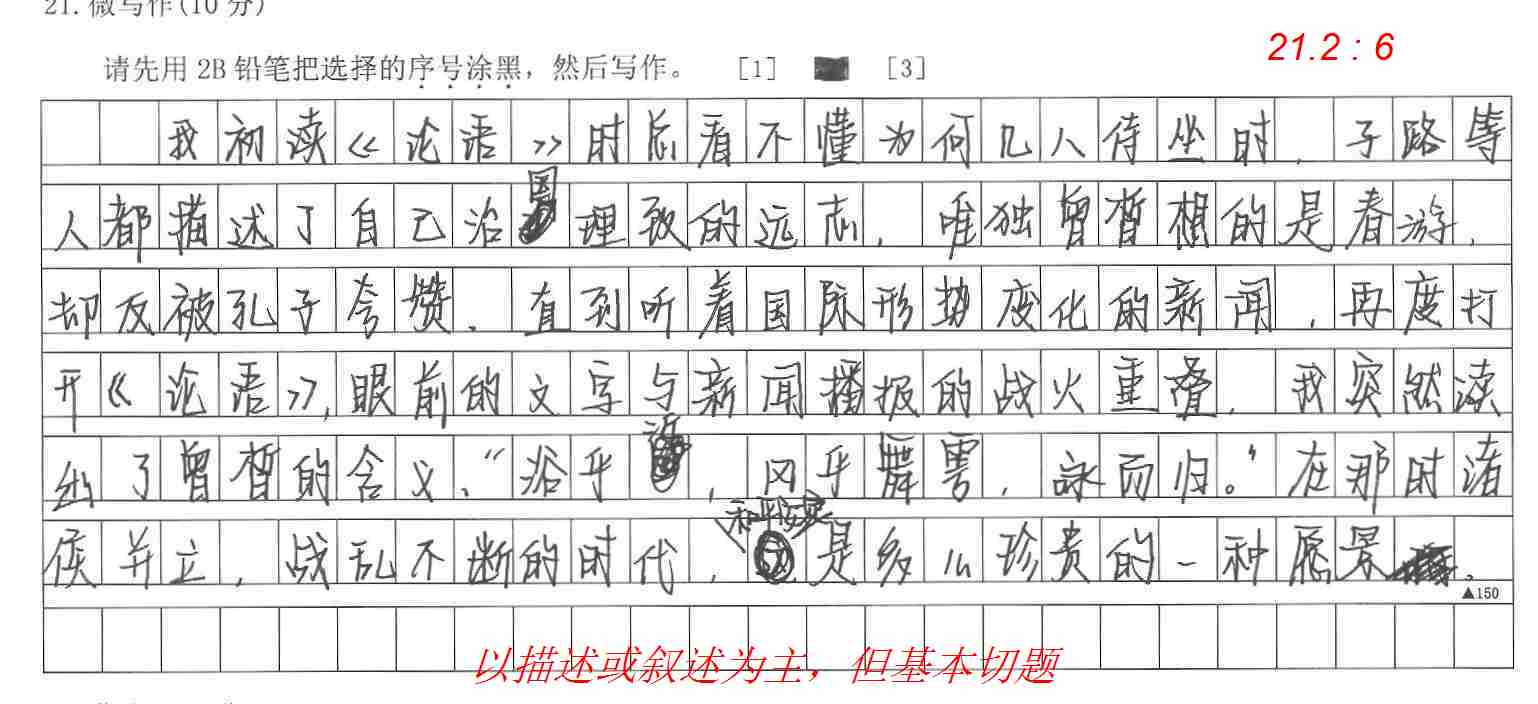 21.微写作(10分)
21.2：6
请先用2B铅笔把选择的序号涂黑，然后写作。 [1] [3]
我初读《论语》时总看不懂为何几人侍坐时，子路等
人都描述了自己治国理政的远志，唯独曾晳想的是春游，
却反被孔子夸赞、直到听着国际形势变化的新闻，再度打
开《论语》，眼前的文字与新闻播报的战火重叠，我突然读
出了曾晳的含义、“浴乎沂，风乎舞雩，詠而归。”在那时诸
侯并立，战乱不断的时代，和平安宁是多么珍贵的一种愿景。
▲150
以描述或叙述为主，但基本切题